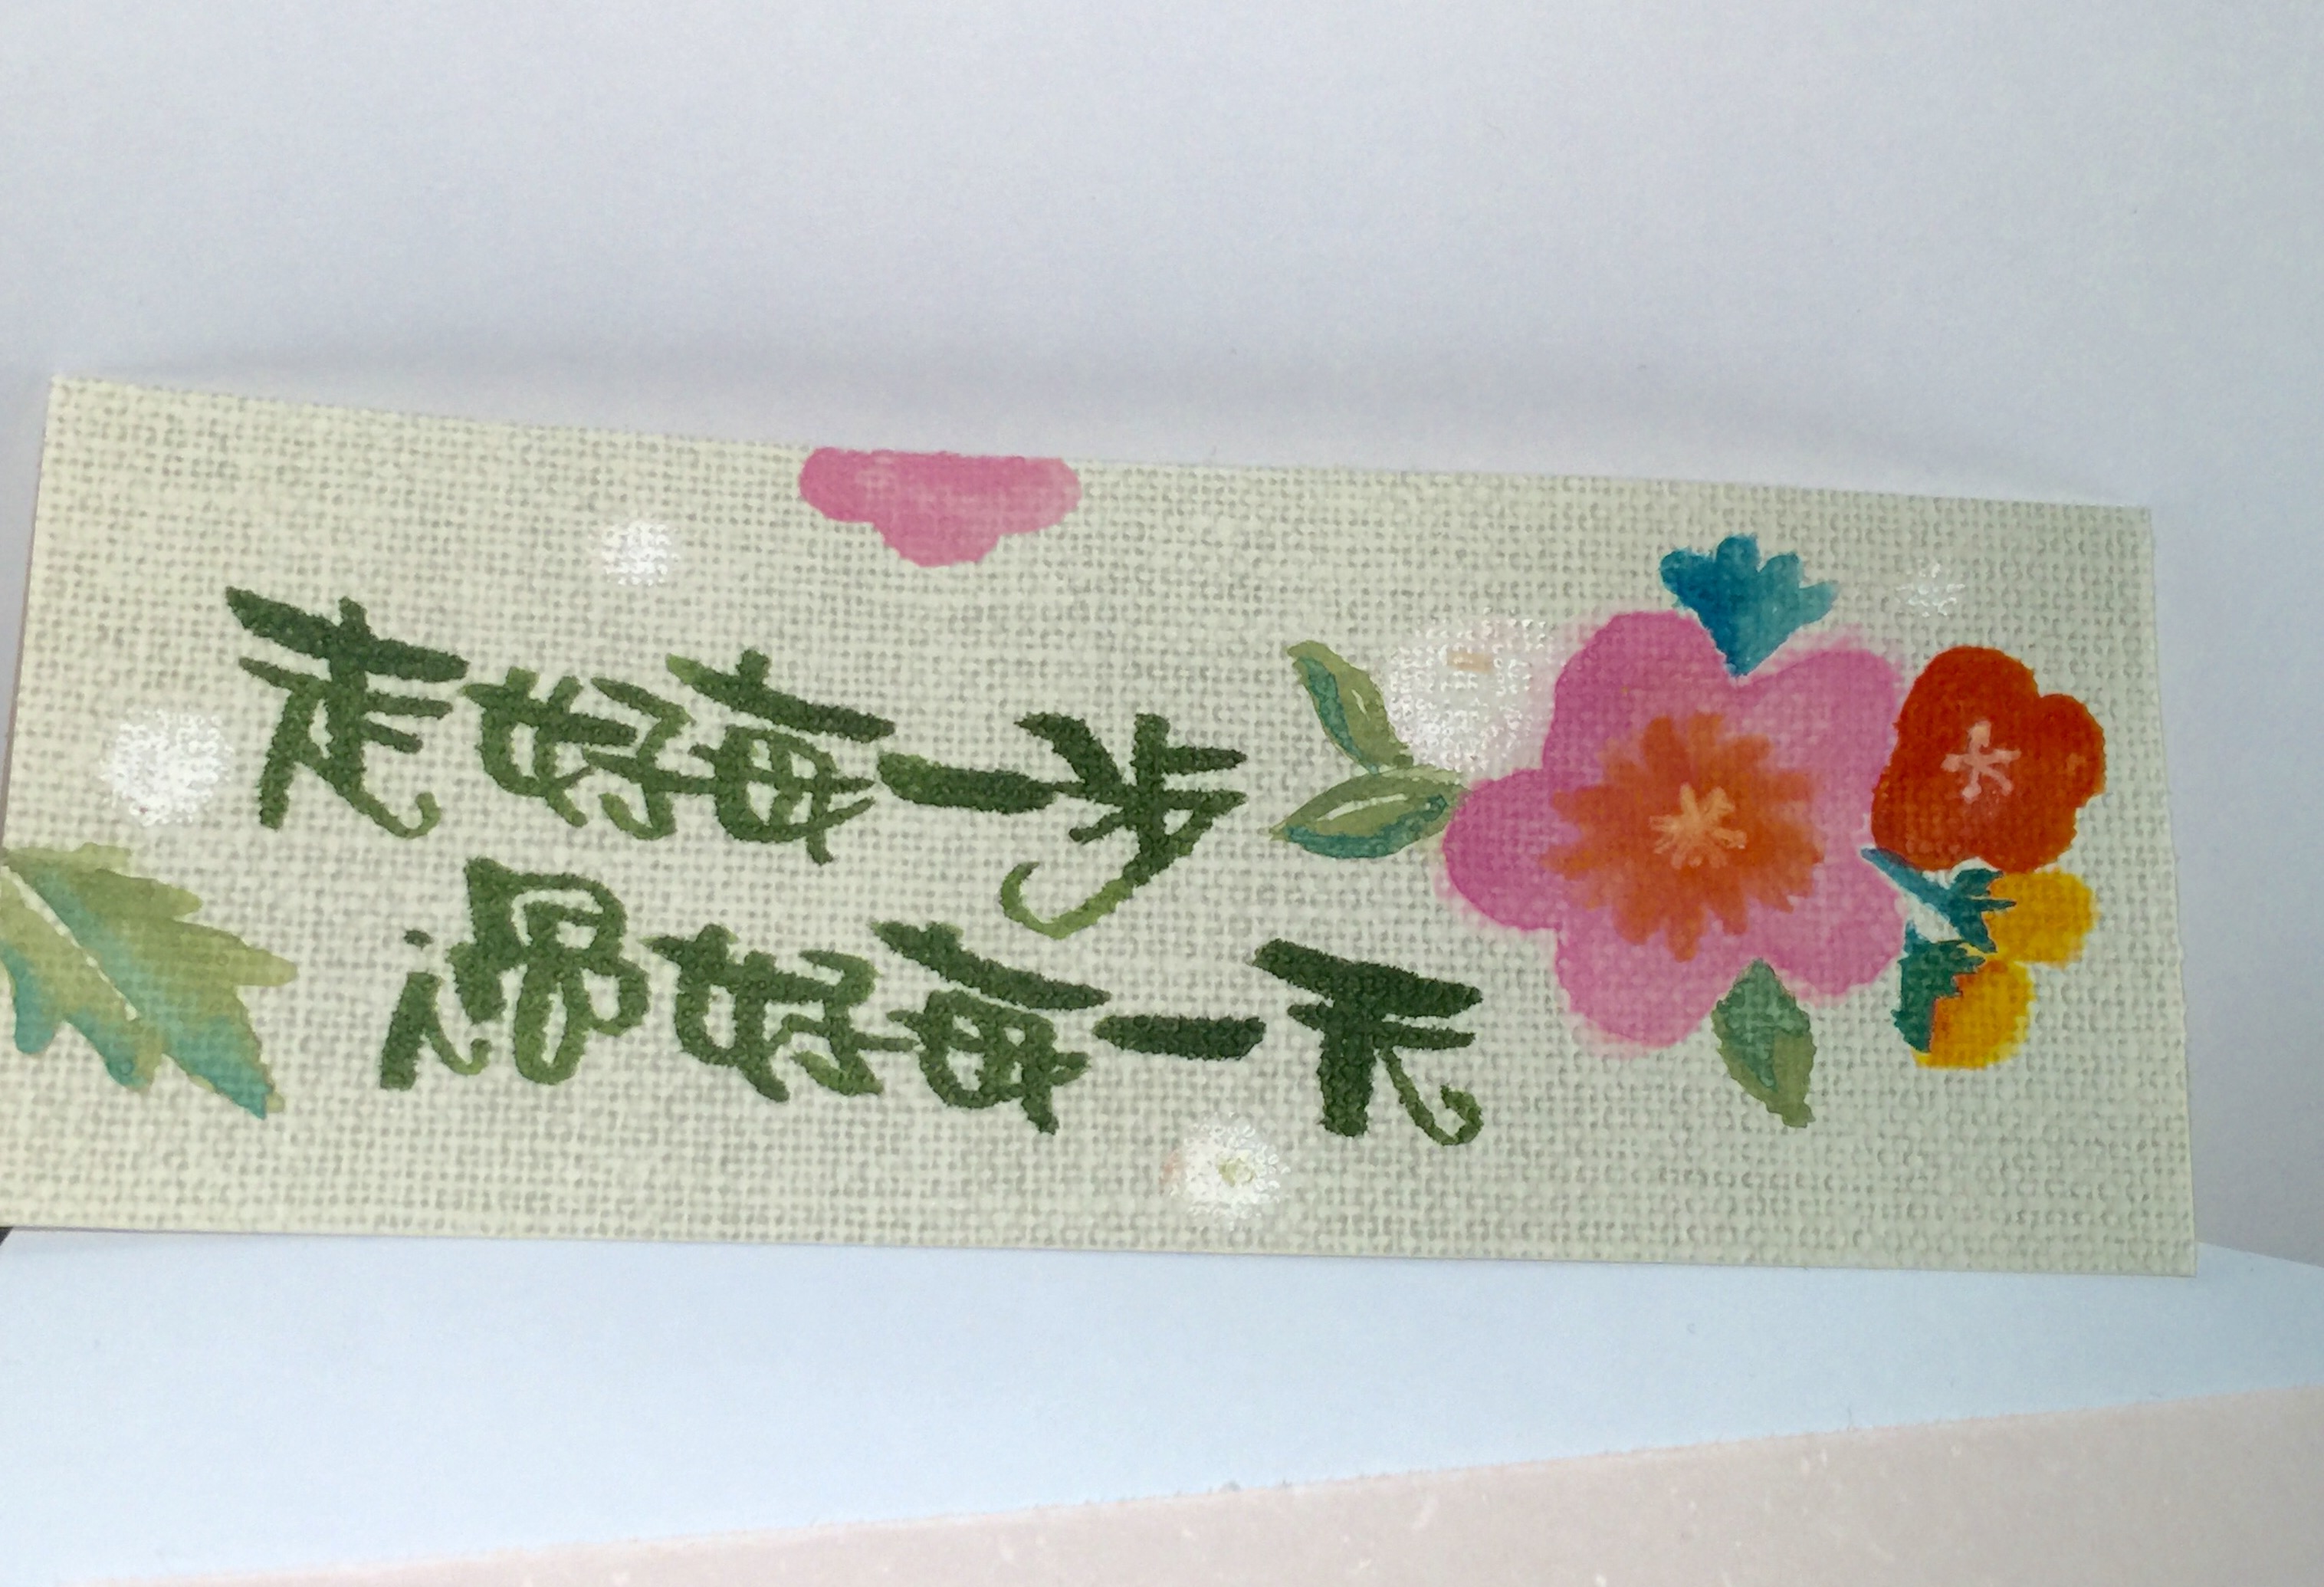 走好每一步
過好每一天